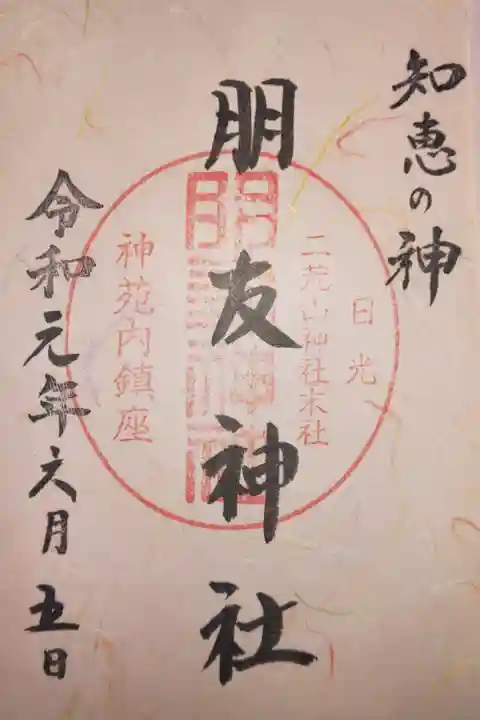 知恵の神
朋友神社
日光
二荒山神社末社
神苑内鎮座
令和元年六月五日